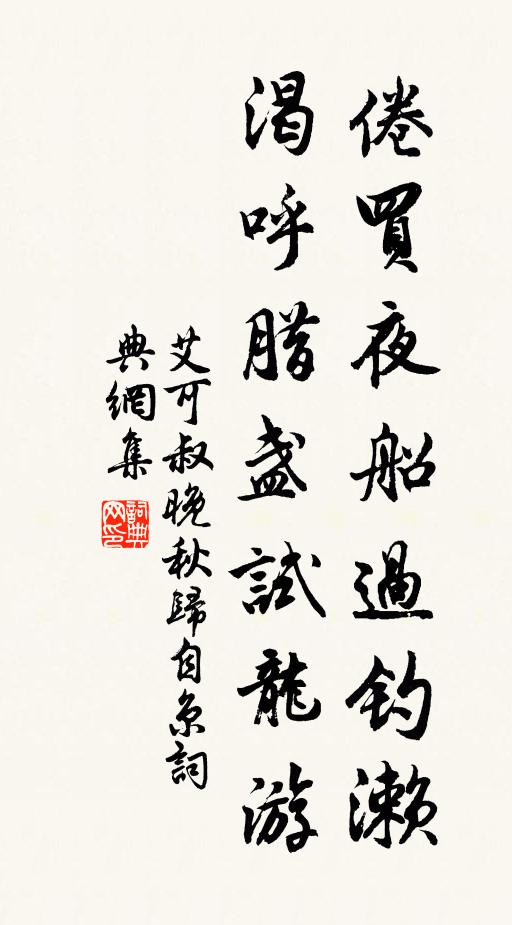 倦買夜船過釣瀨
渴呼腊盞試龍游
艾可叔晚秋歸自京詞
典網集
詞典网印